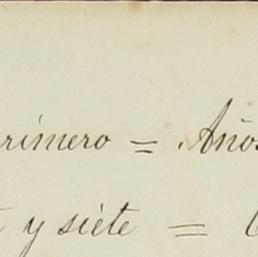 rimero = Años
y siete =